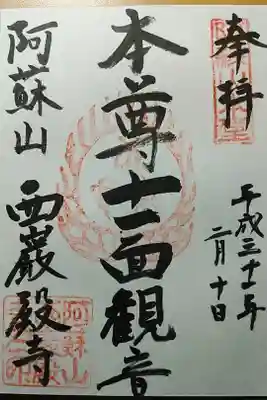 奉拝
平成三十一年
二月十日
本尊十一面観音
阿蘇山
西巖殿寺